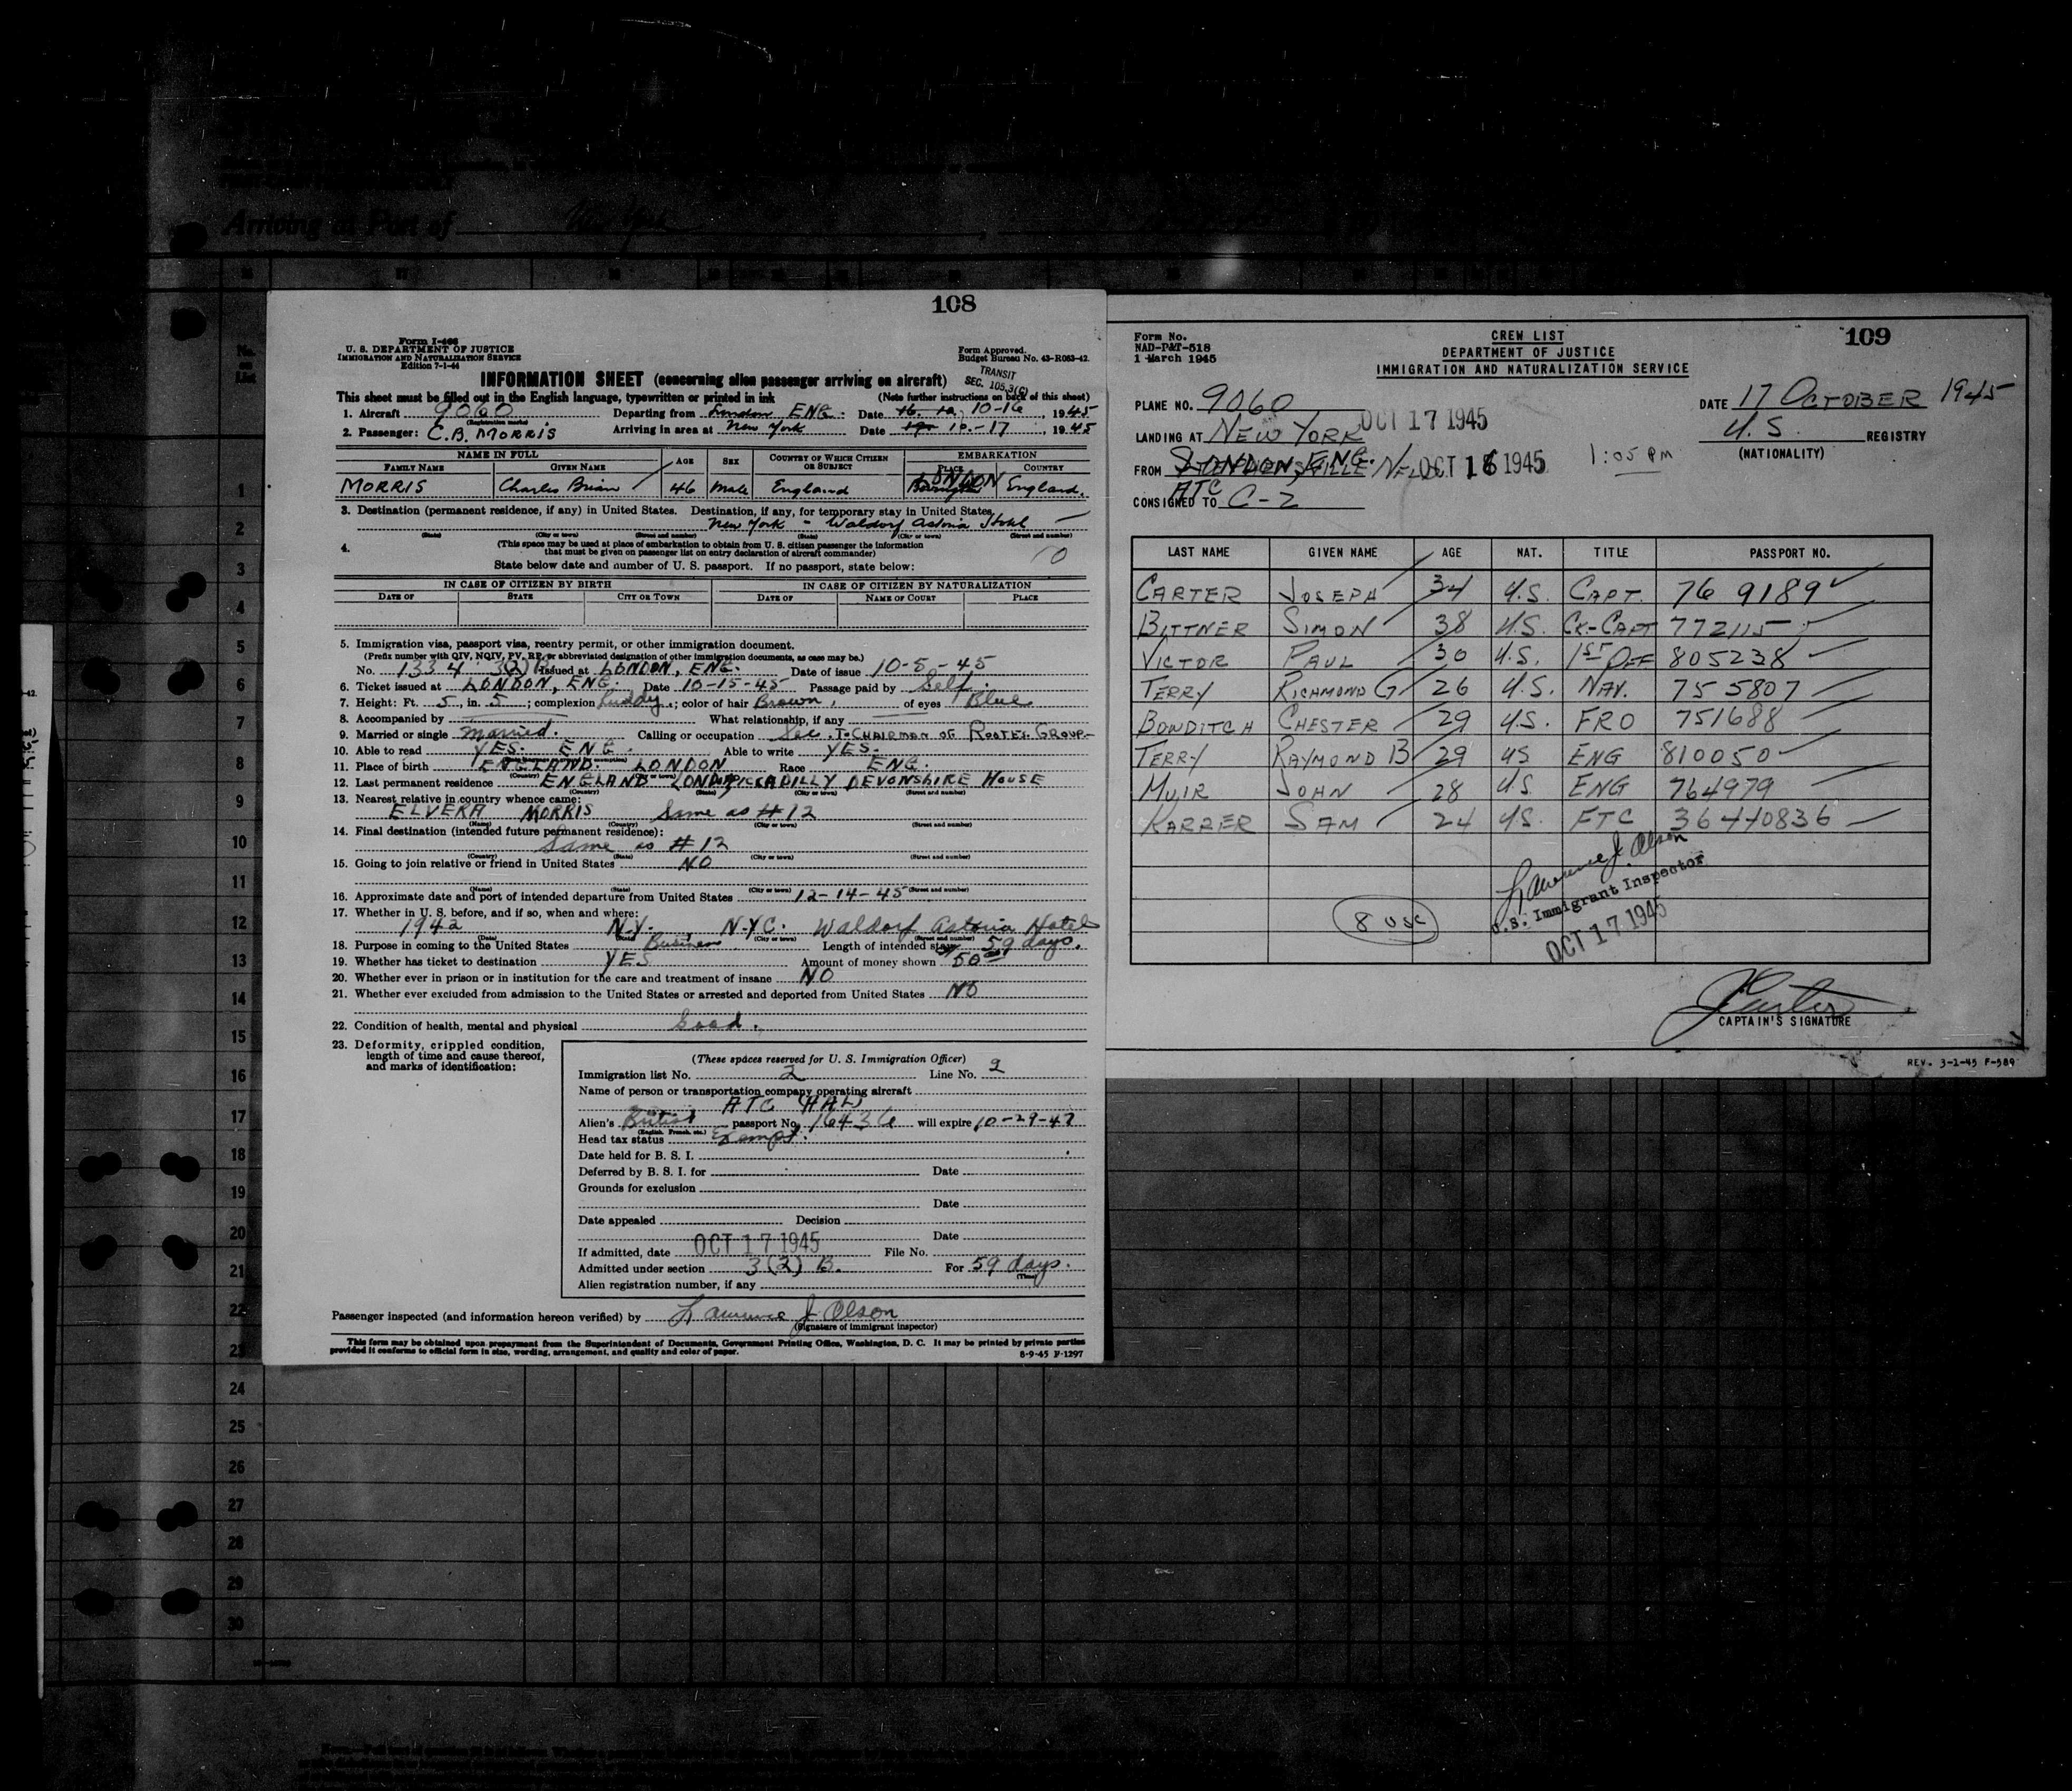 Arriving at Port of New York
108
Form I-466
U. S. DEPARTMENT OF JUSTICE
IMMIGRATION AND NATURALIZATION SERVICE
Edition 7-1-44
Form Approved.
Budget Bureau No. 43-R063-42.
TRANSIT
SEC. 105.3(C)
INFORMATION SHEET (concerning alien passenger arriving on aircraft)
This sheet must be filled out in the English language, typewritten or printed in ink (Note further instructions on back of this sheet)
1. Aircraft 9060 Departing from London ENG. Date 10-16, 1945
(Registration marks)
2. Passenger: C.B. MORRIS Arriving in area at New York Date 10-17, 1945
NAME IN FULL AGE SEX COUNTRY OF WHICH CITIZEN OR SUBJECT EMBARKATION
FAMILY NAME GIVEN NAME PLACE COUNTRY
MORRIS Charles Brian 46 Male England LONDON England.
3. Destination (permanent residence, if any) in United States. Destination, if any, for temporary stay in United States.
New York - Waldorf Astoria Hotel
(State) (City or town) (Street and number) (State) (City or town) (Street and number)
4. (This space may be used at place of embarkation to obtain from U. S. citizen passenger the information
that must be given on passenger list on entry declaration of aircraft commander)
State below date and number of U. S. passport. If no passport, state below:
IN CASE OF CITIZEN BY BIRTH IN CASE OF CITIZEN BY NATURALIZATION
DATE OF STATE CITY OR TOWN DATE OF NAME OF COURT PLACE
5. Immigration visa, passport visa, reentry permit, or other immigration document.
(Prefix number with QIV, NQIV, PV, RP, or abbreviated designation of other immigration documents, as case may be.)
No. 1334 3(2) B Issued at LONDON, ENG. Date of issue 10-5-45
6. Ticket issued at LONDON, ENG. Date 10-15-45 Passage paid by Self.
7. Height: Ft. 5, in. 5; complexion Ruddy.; color of hair Brown, of eyes Blue
8. Accompanied by What relationship, if any
9. Married or single Married. Calling or occupation Sec. To CHAIRMAN OF ROOTES GROUP.
10. Able to read YES. ENG. Able to write YES.
11. Place of birth ENGLAND. LONDON Race ENG.
12. Last permanent residence ENGLAND LONDON PICCADILLY DEVONSHIRE HOUSE
13. Nearest relative in country whence came:
ELVERA MORRIS Same as #12
14. Final destination (intended future permanent residence):
Same as #12
15. Going to join relative or friend in United States NO
16. Approximate date and port of intended departure from United States 12-14-45
17. Whether in U. S. before, and if so, when and where:
1942 N.Y. N.Y.C. Waldorf Astoria Hotel
18. Purpose in coming to the United States Business Length of intended stay 59 days.
19. Whether has ticket to destination YES Amount of money shown 50
20. Whether ever in prison or in institution for the care and treatment of insane NO
21. Whether ever excluded from admission to the United States or arrested and deported from United States NO
22. Condition of health, mental and physical Good.
23. Deformity, crippled condition,
length of time and cause thereof,
and marks of identification:
(These spaces reserved for U. S. Immigration Officer)
Immigration list No. 2 Line No. 2
Name of person or transportation company operating aircraft
ATC (HAL)
Alien's British passport No. 16436 will expire 10-29-47
(English, French, etc.)
Head tax status Exempt.
Date held for B. S. I.
Deferred by B. S. I. for Date
Grounds for exclusion
Date
Date appealed Decision
Date
If admitted, date OCT 17 1945 File No.
Admitted under section 3(2) B. For 59 days.
(Time)
Alien registration number, if any
Passenger inspected (and information hereon verified) by Lawrence J. Olson
(Signature of immigrant inspector)
This form may be obtained upon prepayment from the Superintendent of Documents, Government Printing Office, Washington, D. C. It may be printed by private parties
provided it conforms to official form in size, wording, arrangement, and quality and color of paper.
8-9-45 F-1297
109
Form No.
NAD-P&T-518
1 March 1945
CREW LIST
DEPARTMENT OF JUSTICE
IMMIGRATION AND NATURALIZATION SERVICE
PLANE NO. 9060 DATE 17 OCTOBER 1945
LANDING AT NEW YORK OCT 17 1945 U.S. REGISTRY
(NATIONALITY)
FROM LONDON, ENG. OCT 16 1945 1:05 PM
CONSIGNED TO ATC C-2
LAST NAME GIVEN NAME AGE NAT. TITLE PASSPORT NO.
CARTER JOSEPH 34 U.S. CAPT. 769189
BITTNER SIMON 38 U.S. CK-CAPT 772115
VICTOR PAUL 30 U.S. 1ST OFF 805238
TERRY RICHMOND G 26 U.S. NAV. 755807
BONDITCH CHESTER 29 U.S. FRO 751688
TERRY RAYMOND B 29 US ENG 810050
MUIR JOHN 28 US ENG 764979
KARRER SAM 24 US. FTC 36440836
Lawrence J. Olson
U.S. Immigrant Inspector
8 USC
OCT 17 1945
JCarter
CAPTAIN'S SIGNATURE
REV. 3-1-45 F-589
1
2
3
4
5
6
7
8
9
10
11
12
13
14
15
16
17
18
19
20
21
22
23
24
25
26
27
28
29
30